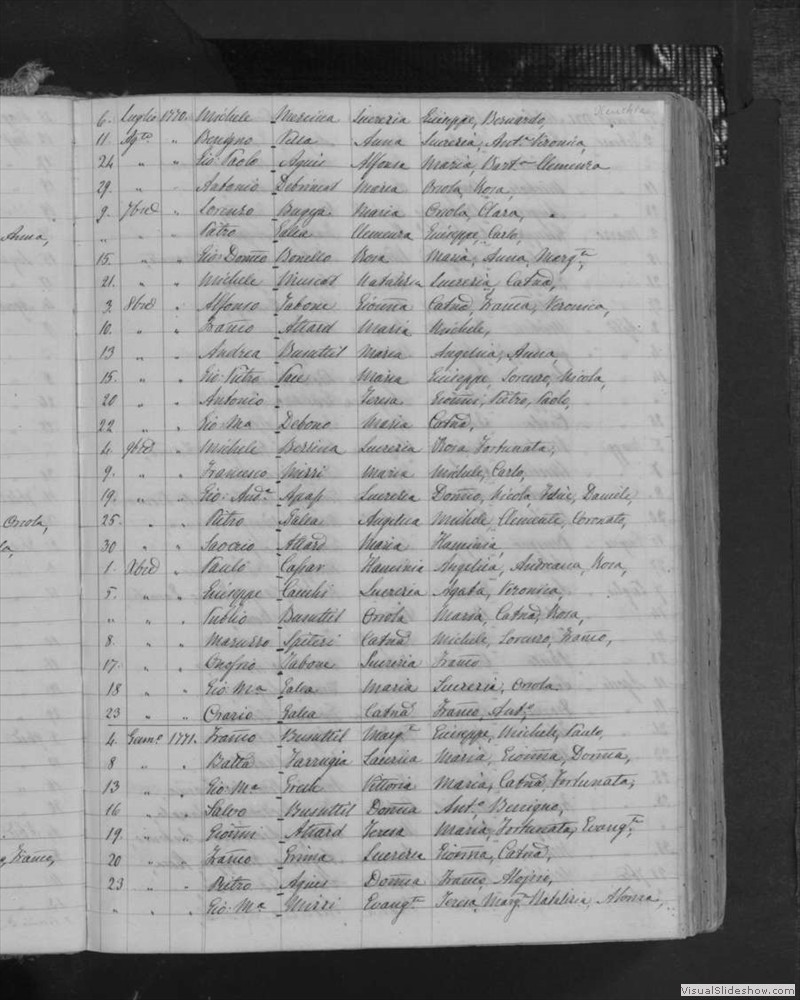 6. Luglio 1770. Michele Lucrezia Giuseppe, Bernardo,
11 Agto " Benigno Anna Lucrezia, Anta Veronica,
24 " " Gio: Paolo Agius Alfonsa Maria, Barta Clemenza
29. " Antonio Maria Oriola, Rosa,
9. 7bre " Lorenzo Bugeja Maria Oriola, Clara,
Anna, " " Pietro Galea Clemenza Giuseppe, Carlo,
15. " " Gio: Domco Bonello Rosa Maria, Anna, Margta,
21. " " Michele Muscat Natalizia Lucrezia, Catna,
3. 8bre " Alfonso Tabone Gionna Catna, Franca, Veronica,
10. " " Franco Attard Maria Michele,
13 " " Andrea Busuttil Maria Angelica, Anna,
15. " " Gio: Pietro Pace Maria Giuseppe, Lorenzo, Nicola,
20 " " Antonio Teresa Gionni, Pietro, Paolo,
22 " " Gio Ma Debono Maria Catna,
4. 9bre " Michele Lucrezia Rosa Fortunata,
9. " " Francesco Mizzi Maria Michele, Carlo,
19. " " Gio: Anda Apap Lucrezia Domco, Nicola, Felice, Daniele,
Oriola, 25. " " Pietro Galea Angelica Michele, Clemente, Coronato,
30 " " Attard Maria Flaminia,
1. Xbre " Paulo Caffar Flaminia Angelica, Andreana, Rosa,
5. " " Giuseppe Lucrezia Agata, Veronica,
" " Publio Busuttil Oriola Maria, Catna, Rosa,
8. " " Maruzzo Spiteri Catna Michele, Lorenzo, Franco,
17. " " Onofrio Tabone Lucrezia Franco
18 " " Gio: Ma Galea Maria Lucrezia, Oriola
23 " " Orazio Galea Catna Franco, Anto,
4. Genno 1771. Franco Busuttil Margta Giuseppe, Michele, Paulo,
8 " " Batta Farrugia Maria, Gionna, Domca,
13 " " Gio: Ma Grech Vittoria Maria, Catna, Fortunata,
16 " " Salvo Busuttil Domca Anto, Benigno,
19. " " Gionni Attard Teresa Maria, Fortunata, Evangta,
Franco, 20 " " Franco Grima Lucrezia Gionna, Catna,
23 " " Pietro Agius Domca Franco, Alojsio,
" " " Gio: Ma Mizzi Evangta Teresa, Margta Natalizia, Alonza,
VisualSlideshow.com